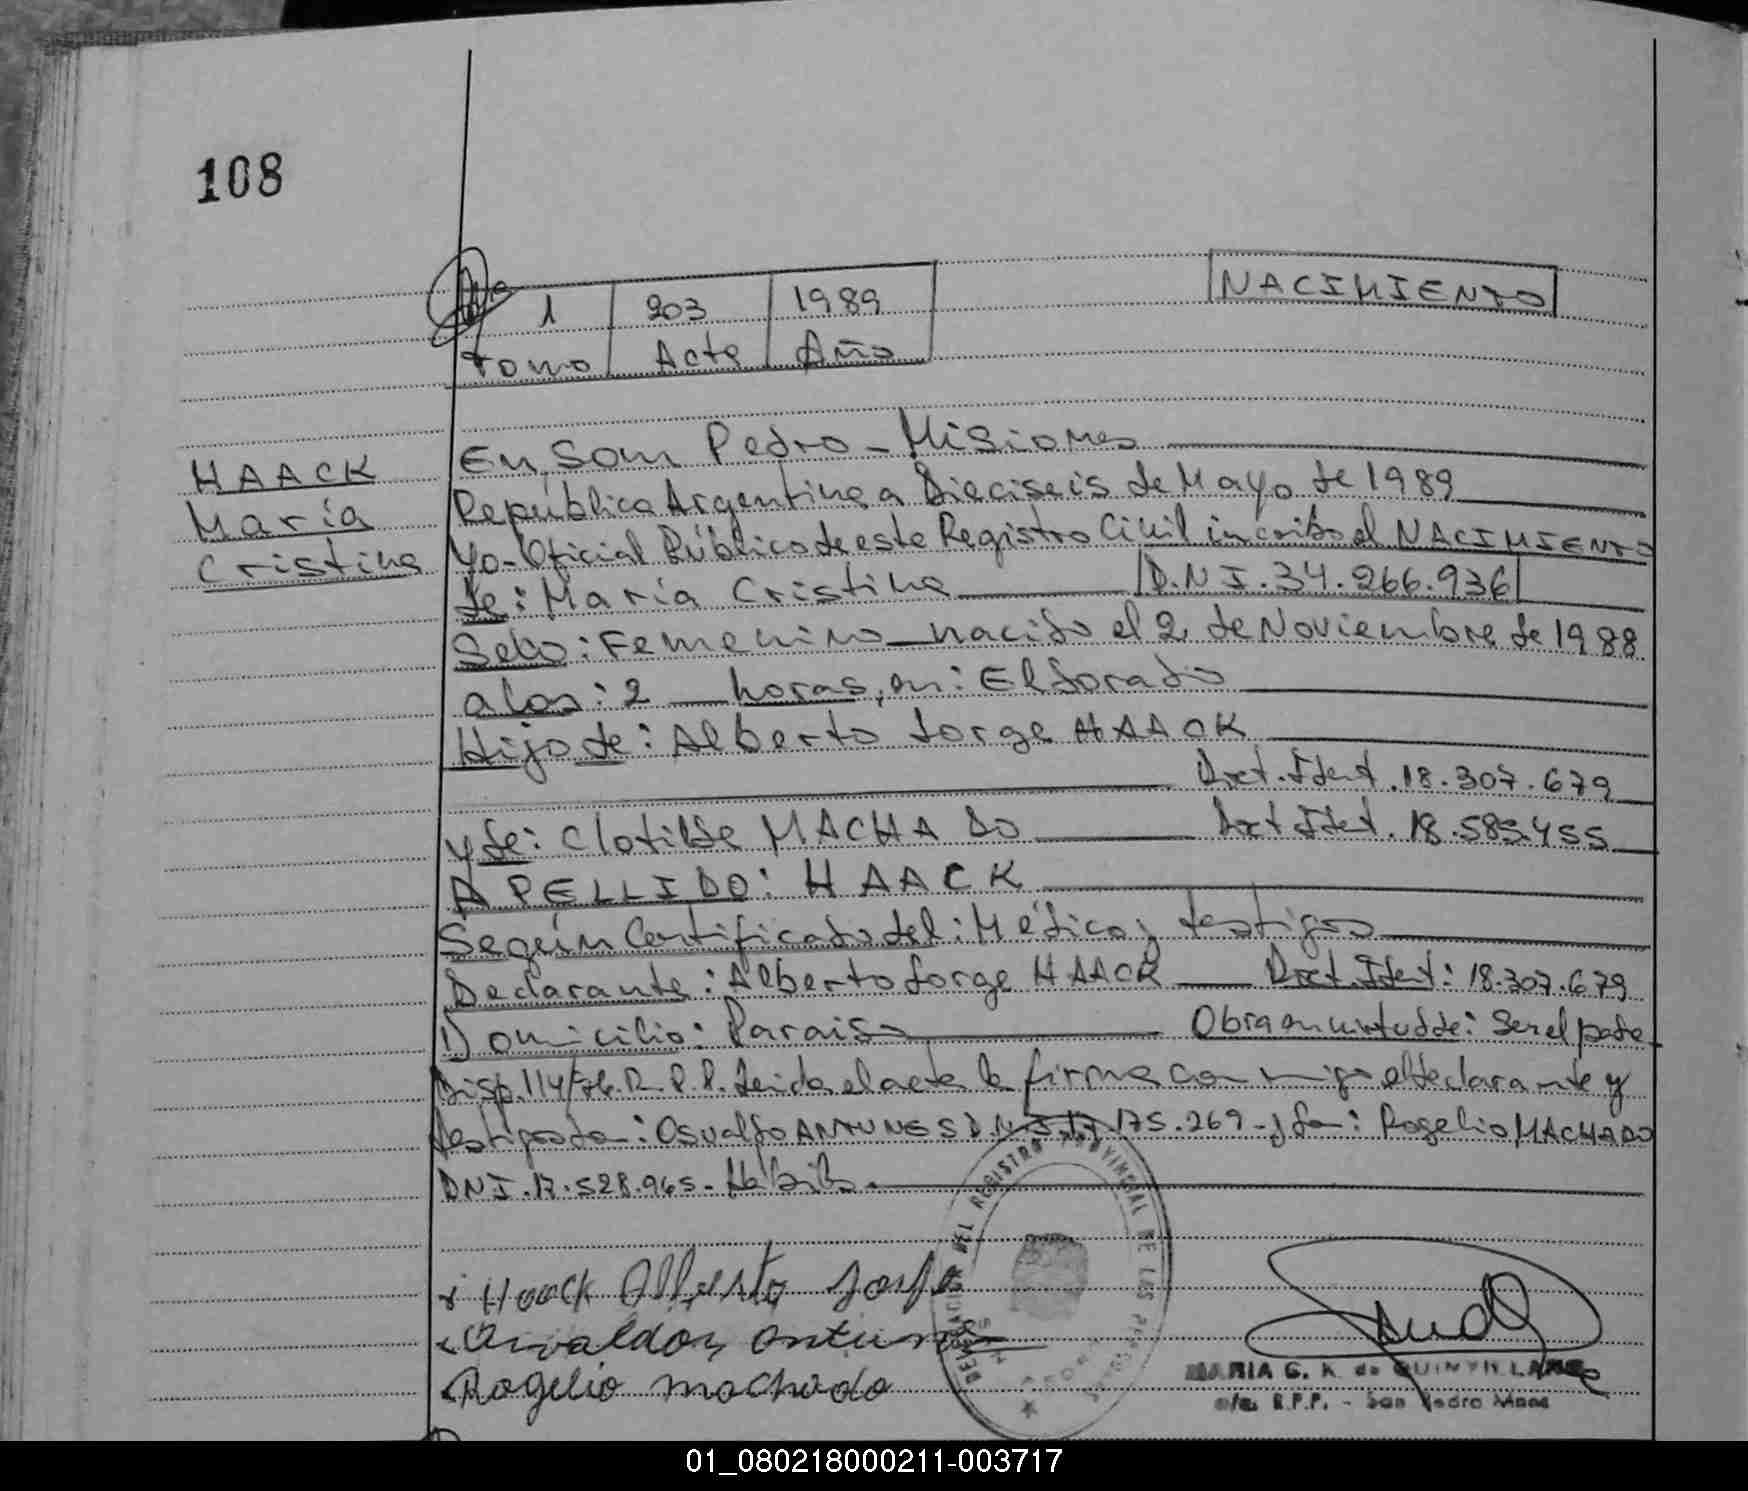 108
1 203 1989 NACIMIENTO
Tomo Acta Año
HAACK
María
Cristina
En San Pedro - Misiones
República Argentina a Dieciseis de Mayo de 1989
Yo - Oficial Público de este Registro Civil inscribo el NACIMIENTO
de: María Cristina D.N.I. 34.266.936
Sexo: Femenino nacido el 2 de Noviembre de 1988
a las: 2 horas, en: Eldorado
Hijo de: Alberto Jorge HAACK
Doct. Ident. 18.307.679
y de: Clotilde MACHADO Doct Ident. 18.585.455
APELLIDO: HAACK
Según Certificado del: Médico y testigos
Declarante: Alberto Jorge HAACK Doct. Ident: 18.307.679
Domicilio: Paraiso Obra en virtud de: Ser el padre
Disp. 114/76. R.P.P. Leida el acta la firma conmigo el declarante y
testigos don: Osvaldo ANTUNES D.N.I. 17.175.269 - y don: Rogelio MACHADO
DNI. 17.528.965 - Hábiles.
Haack Alberto Jorge
Osvaldo Antunes
Rogelio machado
REGISTRO PROVINCIAL DE LAS PERSONAS
MARIA G. K. de QUINTILLANA
R.P.P. - San Pedro Mnes
01_080218000211-003717